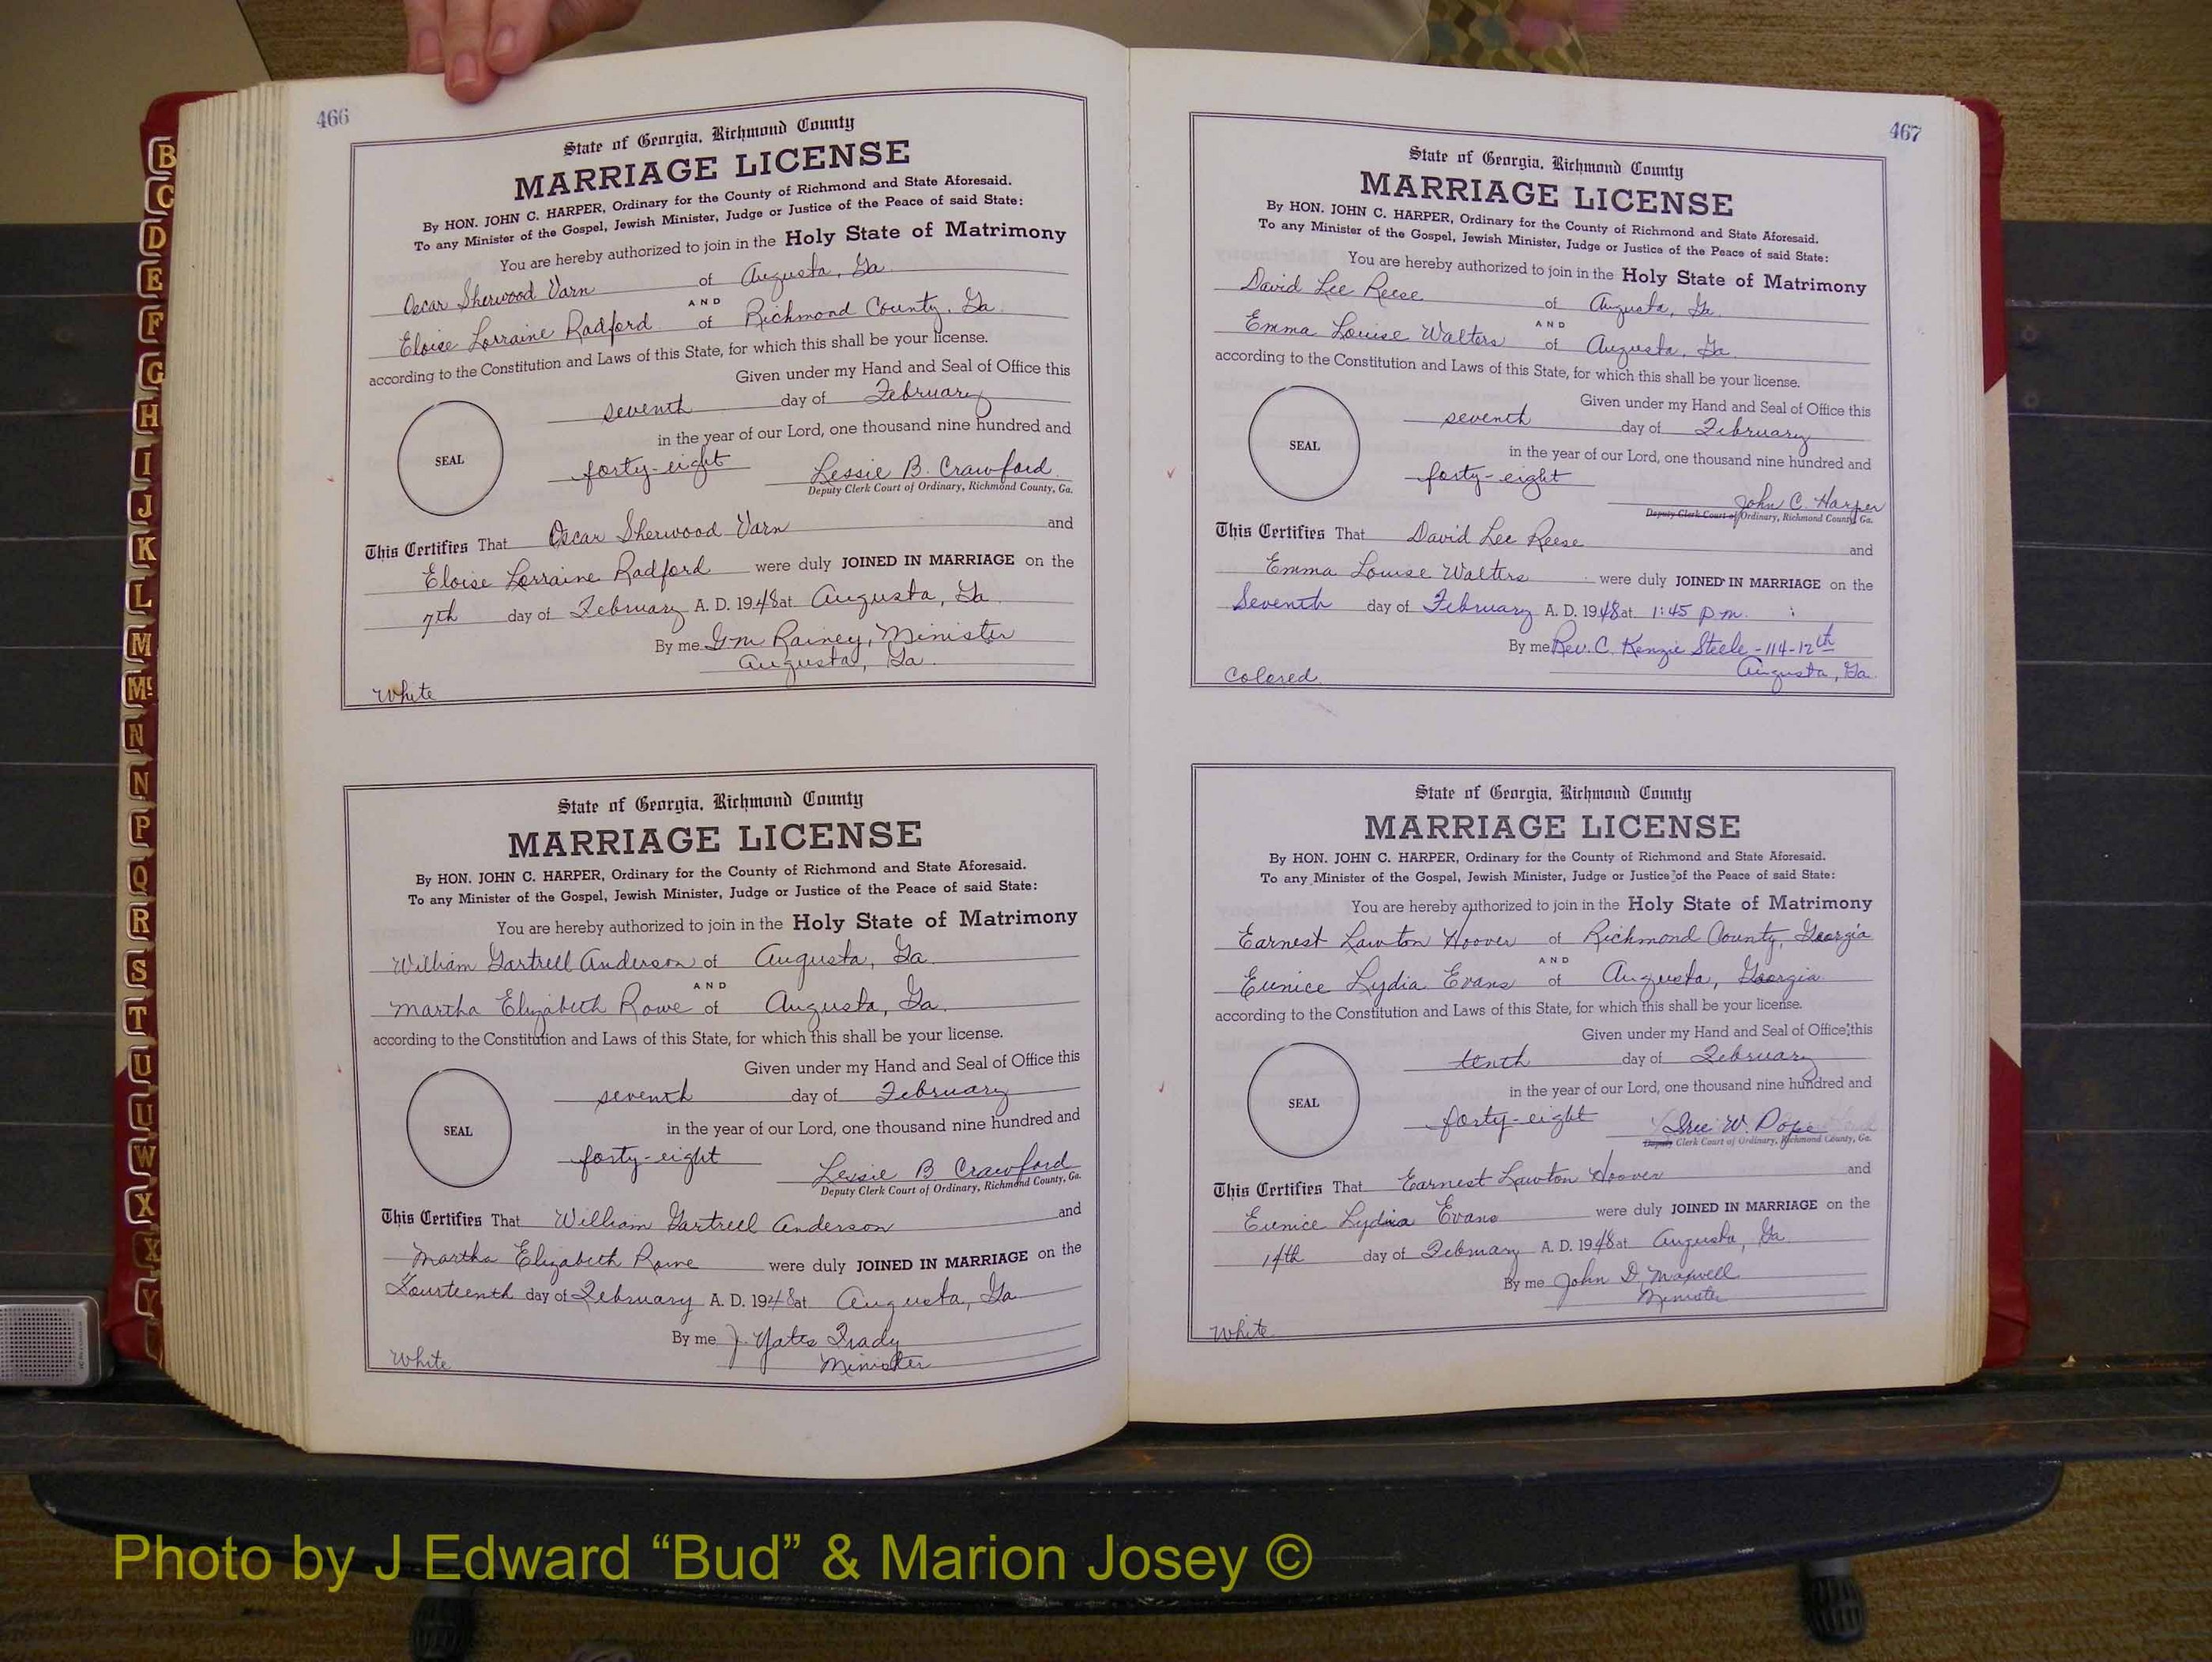 466
State of Georgia, Richmond County
MARRIAGE LICENSE
By HON. JOHN C. HARPER, Ordinary for the County of Richmond and State Aforesaid.
To any Minister of the Gospel, Jewish Minister, Judge or Justice of the Peace of said State:
You are hereby authorized to join in the Holy State of Matrimony
Oscar Sherwood Varn of Augusta, Ga.
AND
Eloise Lorraine Radford of Richmond County, Ga.
according to the Constitution and Laws of this State, for which this shall be your license.
Given under my Hand and Seal of Office this
seventh day of February
in the year of our Lord, one thousand nine hundred and
SEAL
forty-eight Lessie B. Crawford
Deputy Clerk Court of Ordinary, Richmond County, Ga.
This Certifies That Oscar Sherwood Varn and
Eloise Lorraine Radford were duly JOINED IN MARRIAGE on the
7th day of February A. D. 1948 at Augusta, Ga.
By me G.M. Rainey, Minister
Augusta, Ga.
White
State of Georgia, Richmond County
MARRIAGE LICENSE
By HON. JOHN C. HARPER, Ordinary for the County of Richmond and State Aforesaid.
To any Minister of the Gospel, Jewish Minister, Judge or Justice of the Peace of said State:
You are hereby authorized to join in the Holy State of Matrimony
William Gartrell Anderson of Augusta, Ga.
AND
Martha Elizabeth Rowe of Augusta, Ga.
according to the Constitution and Laws of this State, for which this shall be your license.
Given under my Hand and Seal of Office this
seventh day of February
in the year of our Lord, one thousand nine hundred and
SEAL
forty-eight Lessie B Crawford
Deputy Clerk Court of Ordinary, Richmond County, Ga.
This Certifies That William Gartrell Anderson and
Martha Elizabeth Rowe were duly JOINED IN MARRIAGE on the
Fourteenth day of February A. D. 1948 at Augusta, Ga
By me J. Yates
Minister
White
467
State of Georgia, Richmond County
MARRIAGE LICENSE
By HON. JOHN C. HARPER, Ordinary for the County of Richmond and State Aforesaid.
To any Minister of the Gospel, Jewish Minister, Judge or Justice of the Peace of said State:
You are hereby authorized to join in the Holy State of Matrimony
David Lee Reese of Augusta, Ga.
AND
Emma Louise Walters of Augusta, Ga.
according to the Constitution and Laws of this State, for which this shall be your license.
Given under my Hand and Seal of Office this
seventh day of February
in the year of our Lord, one thousand nine hundred and
SEAL
forty-eight John C. Harper
Deputy Clerk Court of Ordinary, Richmond County, Ga.
This Certifies That David Lee Reese and
Emma Louise Walters were duly JOINED IN MARRIAGE on the
Seventh day of February A. D. 1948 at 1:45 p.m.
By me Rev. C. Kenzie Steele - 114-12th
Augusta, Ga.
Colored
State of Georgia, Richmond County
MARRIAGE LICENSE
By HON. JOHN C. HARPER, Ordinary for the County of Richmond and State Aforesaid.
To any Minister of the Gospel, Jewish Minister, Judge or Justice of the Peace of said State:
You are hereby authorized to join in the Holy State of Matrimony
Earnest Lawton Hoover of Richmond County, Georgia
AND
Eunice Lydia Evans of Augusta, Georgia
according to the Constitution and Laws of this State, for which this shall be your license.
Given under my Hand and Seal of Office this
tenth day of February
in the year of our Lord, one thousand nine hundred and
SEAL
forty-eight W. Pope
Deputy Clerk Court of Ordinary, Richmond County, Ga.
This Certifies That Earnest Lawton Hoover and
Eunice Lydia Evans were duly JOINED IN MARRIAGE on the
14th day of February A. D. 1948 at Augusta, Ga.
By me John D. Maxwell
Minister
White
B
C
D
E
F
G
H
I
J
K
L
M
Mc
N
N
P
Q
R
S
T
U
U
W
X
X
Y
Photo by J Edward “Bud” & Marion Josey ©